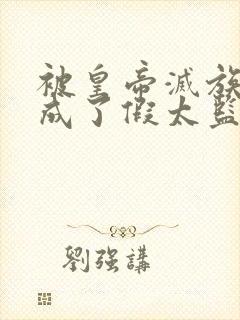 被皇帝滅族
成了假太監
劉強講